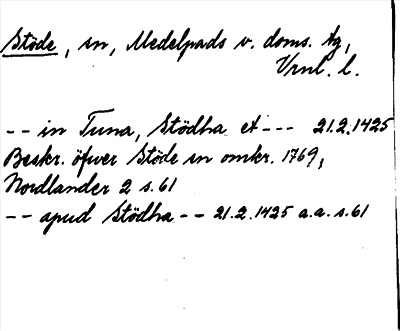 Stöde, sn, Medelpads v. doms. tg,
Vrnl. l.
-- in Tuna, Stödha et --- 21.2.1425
Beskr. öfver Stöde sn omkr. 1769,
Nordlander 2 s. 61
-- apud Stödha -- 21.2.1425 a.a. s. 61